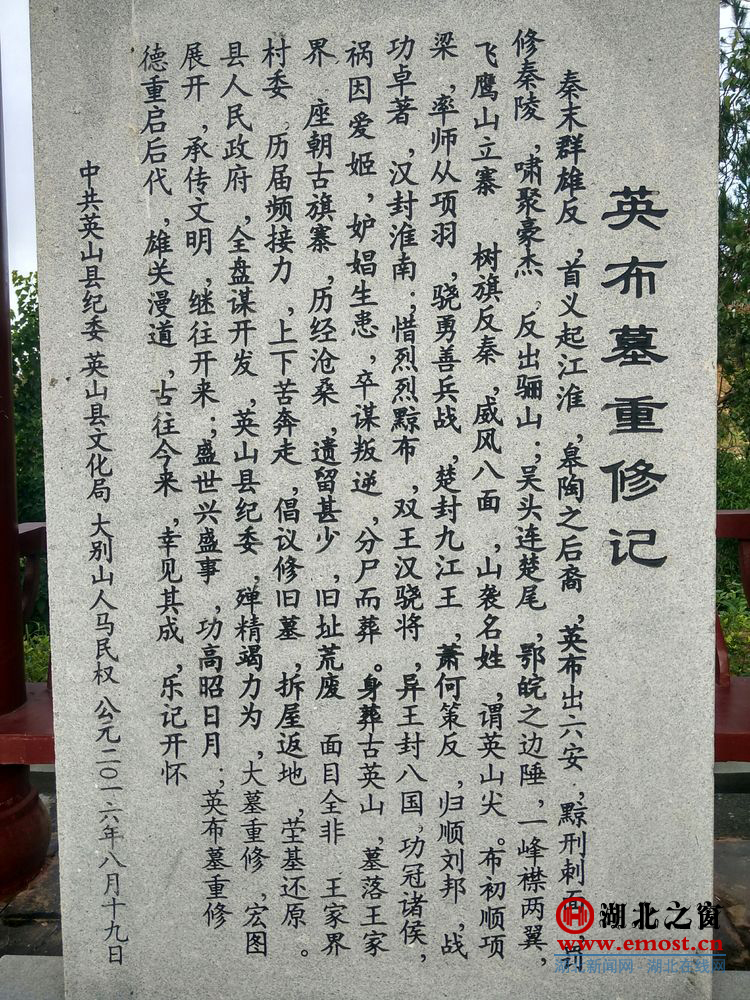 英布墓重修记
秦末群雄反，首义起江淮，皋陶之后裔，英布出六安，黥刑刺面，罚
修秦陵，啸聚豪杰，反出骊山；吴头连楚尾，鄂皖之边陲，一峰襟两翼，
飞鹰山立寨，树旗反秦，威风八面，山袭名姓，谓英山尖。布初顺项
梁，率师从项羽，骁勇善兵战，楚封九江王，萧何策反，归顺刘邦，战
功卓著，汉封淮南；惜烈烈黥布，双王汉骁将，异王封八国，功冠诸侯，
祸因爱姬，妒娼生患，卒谋叛逆，分尸而葬。身葬古英山，墓落王家
界，座朝古旗寨，历经沧桑，遗留甚少，旧址荒废，面目全非，王家界
村委，历届频接力，上下苦奔走，倡议修旧墓，拆屋返地，茔基还原。
县人民政府，全盘谋开发，英山县纪委，殚精竭力为，大墓重修，宏图
展开，承传文明，继往开来；盛世兴盛事，功高昭日月；英布墓重修
德重启后代，雄关漫道，古往今来，幸见其成，乐记开怀
中共英山县纪委 英山县文化局 大别山人马民权 公元二〇一六年八月十九日
湖北之窗
www.emost.cn
湖北新闻网 湖北在线网